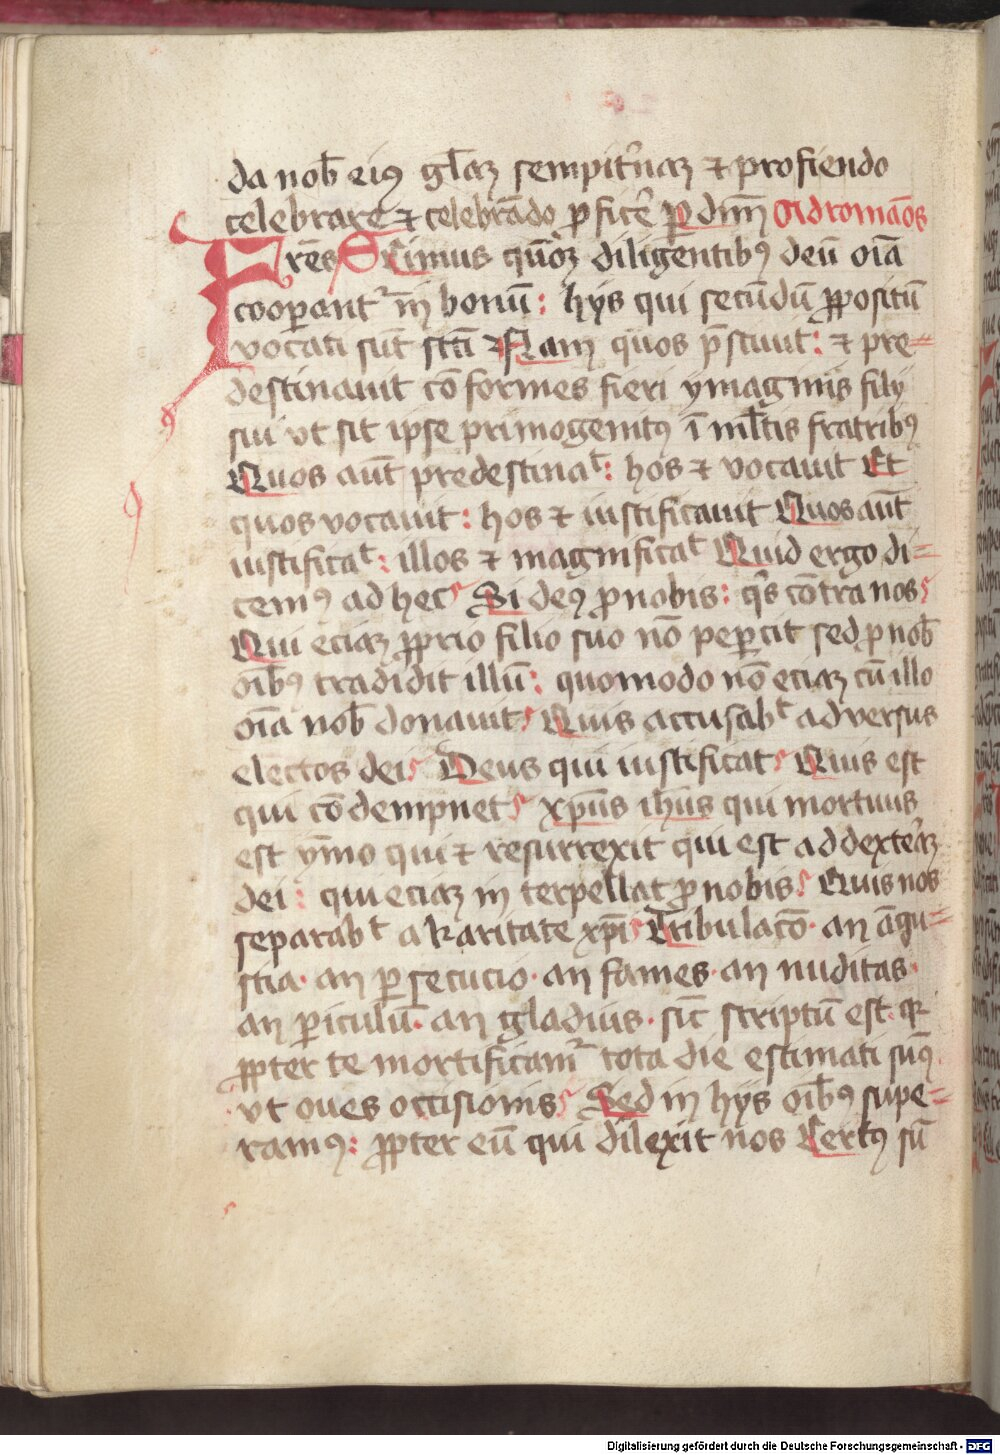 da nob̄ eiꝯ gl̄aꝫ sempit̾naꝫ ⁊ profiendo
celebrare ⁊ celebrādo ꝑficẽ ꝑ dnm̄ Ad romāos
Frēs Scimus qūoꝫ diligentibꝯ deū oīa
cooꝑant᷑ in bonū: hys qui secūdū ꝓpositū
vocati sūt sctī Nam quos p̄sciuit: ⁊ pre=
destinauit cōformes fieri ymaginis filij
sui vt sit ipse primogenitꝯ ī ml̄tis fratribꝯ
Quos aūt predestinaͭ: hos ⁊ vocauit Et
quos vocauit: hos ⁊ iustificauit Quos aūt
iustificaͭ: illos ⁊ magnificaͭ Quid ergo di=
cemꝯ ad hec Si deꝯ ꝓ nobis: qͥs cōtra nos
Qui eciaꝫ ꝓprio filio suo nō peꝑcit sed ꝓ nob̄
oīb̄ꝯ tradidit illū: quomodo nō eciaꝫ cū illo
oīa nob̄ donauit Quis accusabͭ aduersus
electos dei Deus qui iustificat Quis est
qui cōdempnet xp̄us ih̄us qui mortuus
est ymo qui ⁊ resurrexit qui est ad dexteraꝫ
dei: qui eciaꝫ in terpellat ꝓ nobis Quis nos
separabͭ a karitate xp̄i Tribulacō · an āgu=
stia · an ꝑsecucio · an fames · an nuditas ·
an ꝑiculū · an gladius · sic̄ scriptū est · qꝛ
ꝓpter te mortificam᷑ tota die estimati sūꝯ
vt oues occisionis Sed in hys oīb̄ꝯ supe=
ramꝯ: ꝓpter eū qui dilexit nos Certꝯ sū
Digitalisierung gefördert durch die Deutsche Forschungsgemeinschaft - DFG